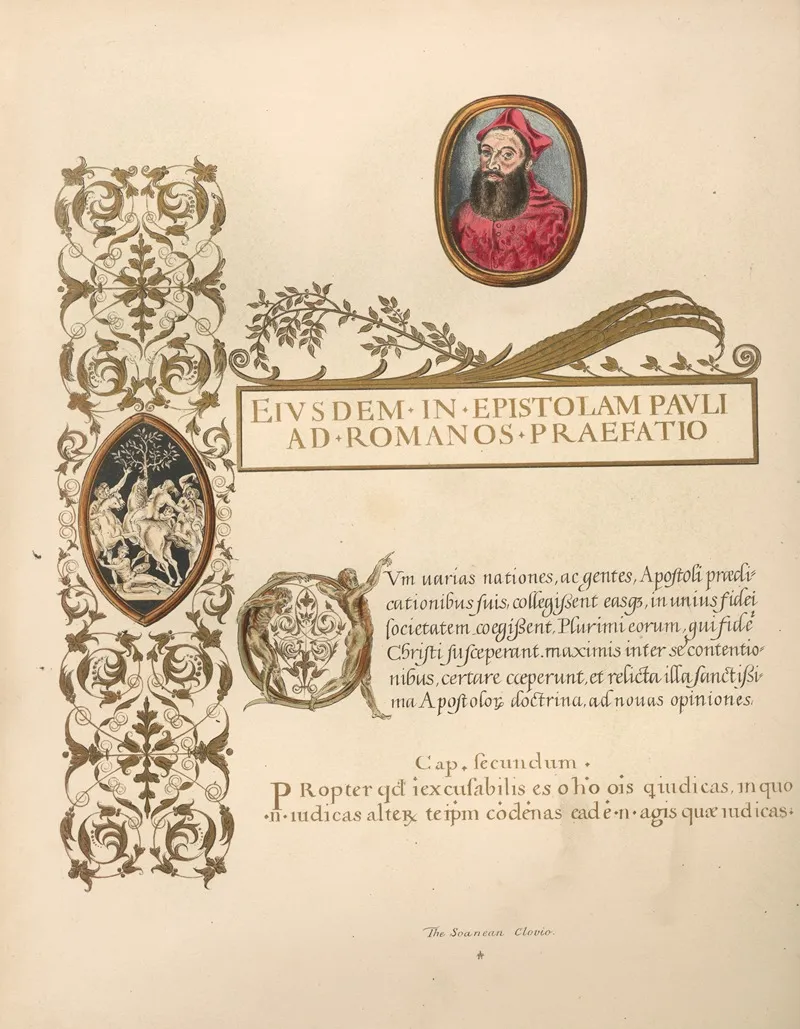 EIVSDEM·IN·EPISTOLAM PAVLI
AD·ROMANOS·PRAEFATIO
QVm uarias nationes, ac gentes, Apoſtoli prædi-
cationibus ſuis, collegiſsent easqꝫ, in unius fidei
ſocietatem coegiſsent, Plurimi eorum, qui fidē
Chriſti ſuſceperant. maximis inter se contentio-
nibus, certare cœperunt, et relicta illa ſanctiſsi-
ma Apoſtoloꝝ doctrina, ad nouas opiniones,
Cap. ſecundum .
PRopter qd̄ īexcuſabilis es o hō oīs q iudicas, in quo
·n· iudicas alteꝝ te ipm cōdēnas eadē·n· agis quæ iudicas.
The Soanean Clovio.